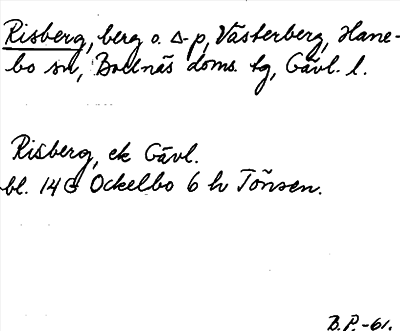 Risberg, berg o. Δ-p, Västerberg, Hane-
bo sn, Bollnäs doms. tg, Gävl. l.
Risberg, ek Gävl.
bl. 14G Ockelbo 6 h Tönsen.
B.P.-61.